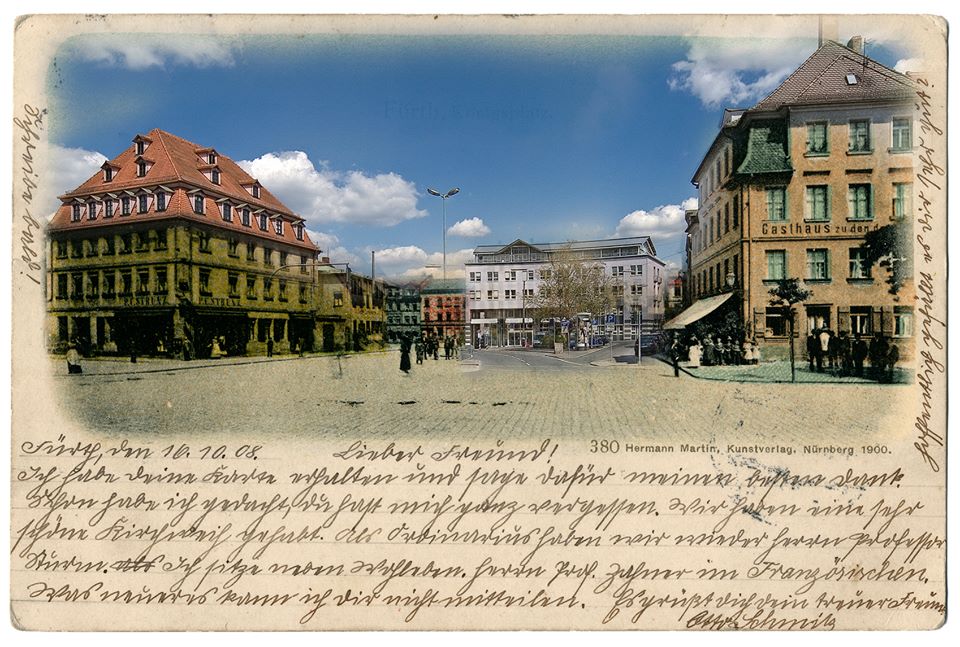 Fürth, Königsplatz.
Gasthaus zu den d
380 Hermann Martin, Kunstverlag, Nürnberg 1900.
Fürth, den 16.10.08. Lieber Freund!
Ich habe deine Karte erhalten und sage dafür meinen besten Dank
Schon habe ich gedacht, du hast mich ganz vergessen. Wir haben eine sehr
schöne Kirchweih gehabt. Als Ordinarius haben wir wieder Herrn Professor
Sturm. Ich sitze neben Wohleben. Herrn Prof. Zahner im Französischen.
Was neueres kann ich dir nicht mitteilen. Es grüßt dich dein treuer Freund
Otto Schmitz